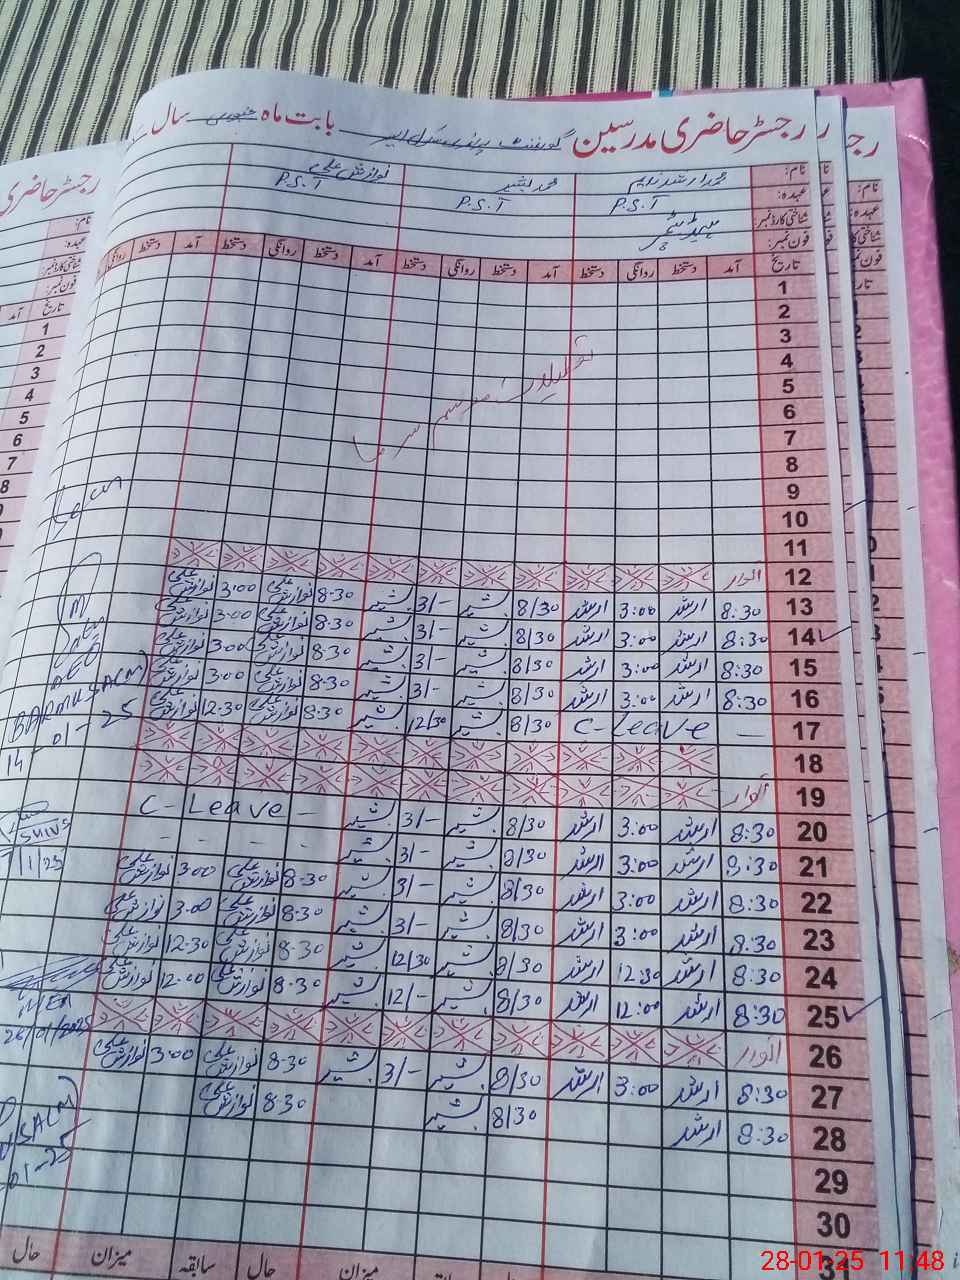 رجسٹر حاضری مدرسین گورنمنٹ بابت ماہ جنوری سال
نام: محمد ارشد ندیم محمد بشیر نوازش علی
عہدہ: P.S.T P.S.T P.S.T
شناختی کارڈ نمبر: ہیڈ ٹیچر
فون نمبر:
تاریخ آمد دستخط روانگی دستخط آمد دستخط روانگی دستخط آمد دستخط روانگی دستخط آمد دستخط
1
2
3
4
تعطیلات موسم سرما
5
6
7
8
9
10
11
12 اتوار
13 8:30 ارشد 3:00 ارشد 8/30 بشیر 3/- بشیر 8-30 نوازش علی 3-00 نوازش علی
14 8:30 ارشد 3:00 ارشد 8/30 بشیر 3/- بشیر 8-30 نوازش علی 3-00 نوازش علی
15 8:30 ارشد 3:00 ارشد 8/30 بشیر 3/- بشیر 8-30 نوازش علی 3-00 نوازش علی
16 8:30 ارشد 3:00 ارشد 8/30 بشیر 3/- بشیر 8-30 نوازش علی 3-00 نوازش علی
17 — C-Leave 8/30 بشیر 12/30 بشیر 8-30 نوازش علی 12-30 نوازش علی
18
19 اتوار
20 8:30 ارشد 3:00 ارشد 8/30 بشیر 3/- بشیر C-Leave -
21 8:30 ارشد 3:00 ارشد 8/30 بشیر 3/- بشیر - - - -
22 8:30 ارشد 3:00 ارشد 8/30 بشیر 3/- بشیر 8-30 نوازش علی 3-00 نوازش علی
23 8:30 ارشد 3:00 ارشد 8/30 بشیر 3/- بشیر 8-30 نوازش علی 3-00 نوازش علی
24 8:30 ارشد 12:30 ارشد 8/30 بشیر 12/30 بشیر 8-30 نوازش علی 12-30 نوازش علی
25 8:30 ارشد 12:00 ارشد 8/30 بشیر 12/- بشیر 8-30 نوازش علی 12-00 نوازش علی
26 اتوار
27 8:30 ارشد 3:00 ارشد 8/30 بشیر 3/- بشیر 8-30 نوازش علی 3-00 نوازش علی
28 8:30 ارشد 8/30 بشیر 8-30 نوازش علی
29
30
میزان حال سابقہ میزان حال
AEO
BARMUSACM)
14-01-25
26/01/2025
رجسٹر حاضری
نام:
عہدہ:
شناختی کارڈ نمبر:
فون نمبر:
تاریخ آمد
1
2
3
4
5
6
7
8
28-01-25 11:48